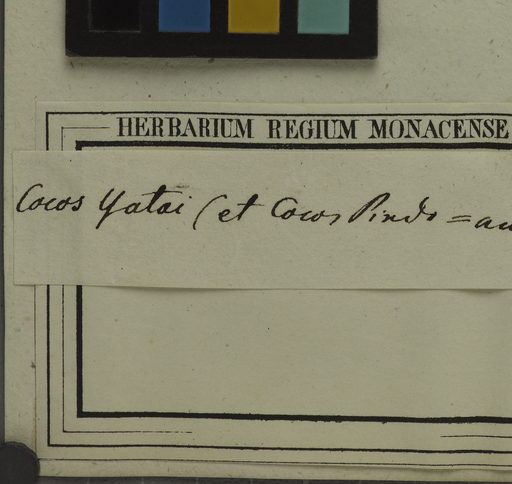 HERBARIUM REGIUM MONACENSE
Cocos Yataì (et Cocos Pindo = au